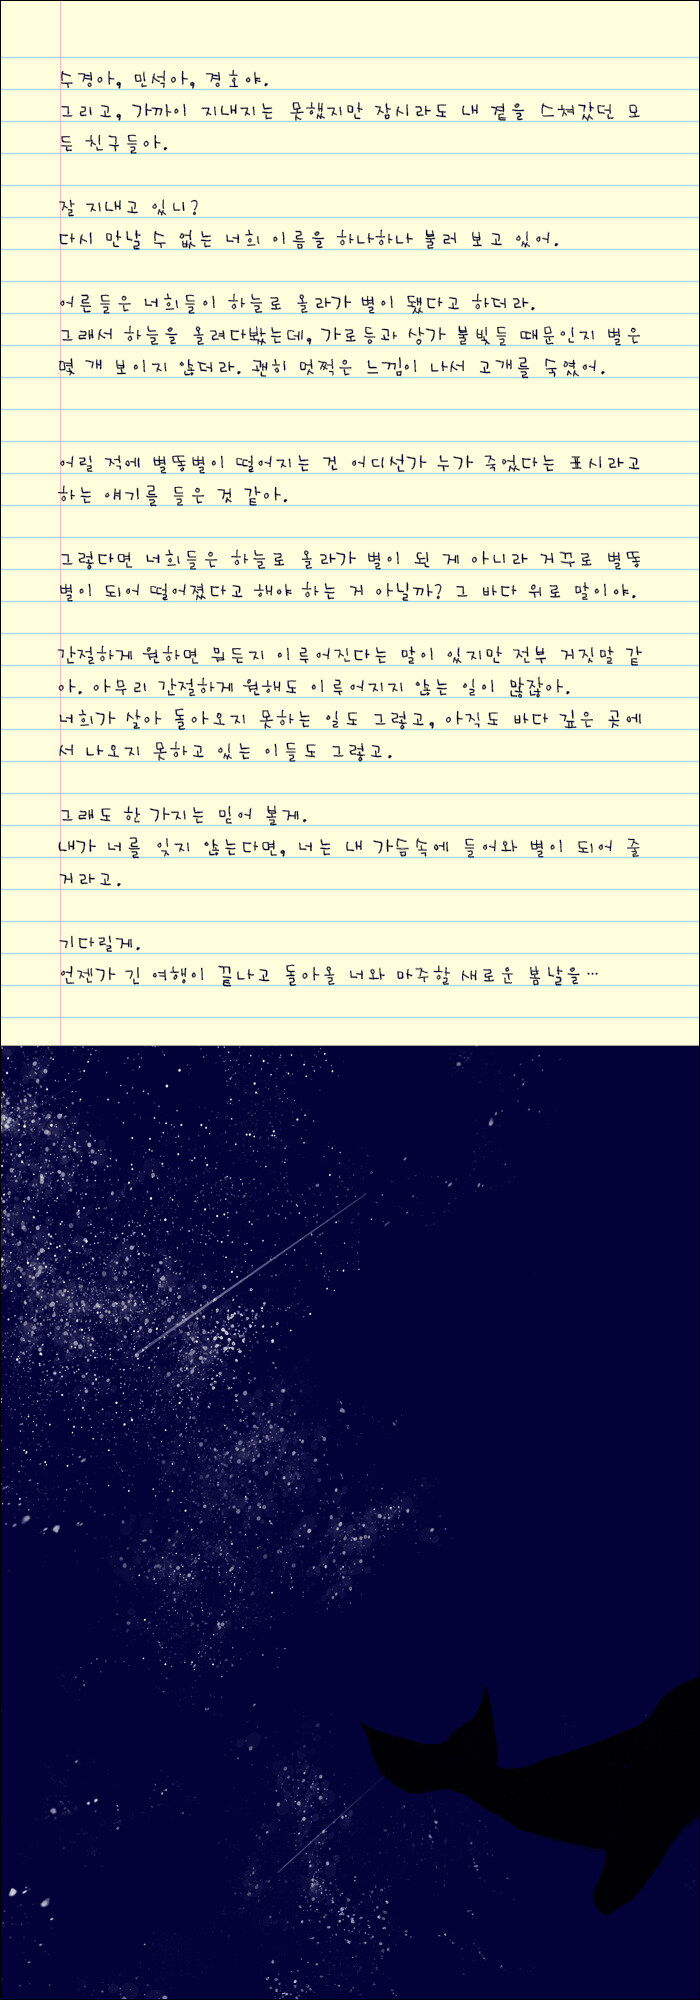 수경아, 민석아, 경호야.
그리고, 가까이 지내지는 못했지만 잠시라도 내 곁을 스쳐갔던 모
든 친구들아.
잘 지내고 있니?
다시 만날 수 없는 너희 이름을 하나하나 불러 보고 있어.
어른들은 너희들이 하늘로 올라가 별이 됐다고 하더라.
그래서 하늘을 올려다봤는데, 가로등과 상가 불빛들 때문인지 별은
몇 개 보이지 않더라. 괜히 멋쩍은 느낌이 나서 고개를 숙였어.
어릴 적에 별똥별이 떨어지는 건 어디선가 누가 죽었다는 표시라고
하는 얘기를 들은 것 같아.
그렇다면 너희들은 하늘로 올라가 별이 된 게 아니라 거꾸로 별똥
별이 되어 떨어졌다고 해야 하는 거 아닐까? 그 바다 위로 말이야.
간절하게 원하면 뭐든지 이루어진다는 말이 있지만 전부 거짓말 같
아. 아무리 간절하게 원해도 이루어지지 않는 일이 많잖아.
너희가 살아 돌아오지 못하는 일도 그렇고, 아직도 바다 깊은 곳에
서 나오지 못하고 있는 이들도 그렇고.
그래도 한 가지는 믿어 볼게.
내가 너를 잊지 않는다면, 너는 내 가슴속에 들어와 별이 되어 줄
거라고.
기다릴게.
언젠가 긴 여행이 끝나고 돌아올 너와 마주할 새로운 봄날을…